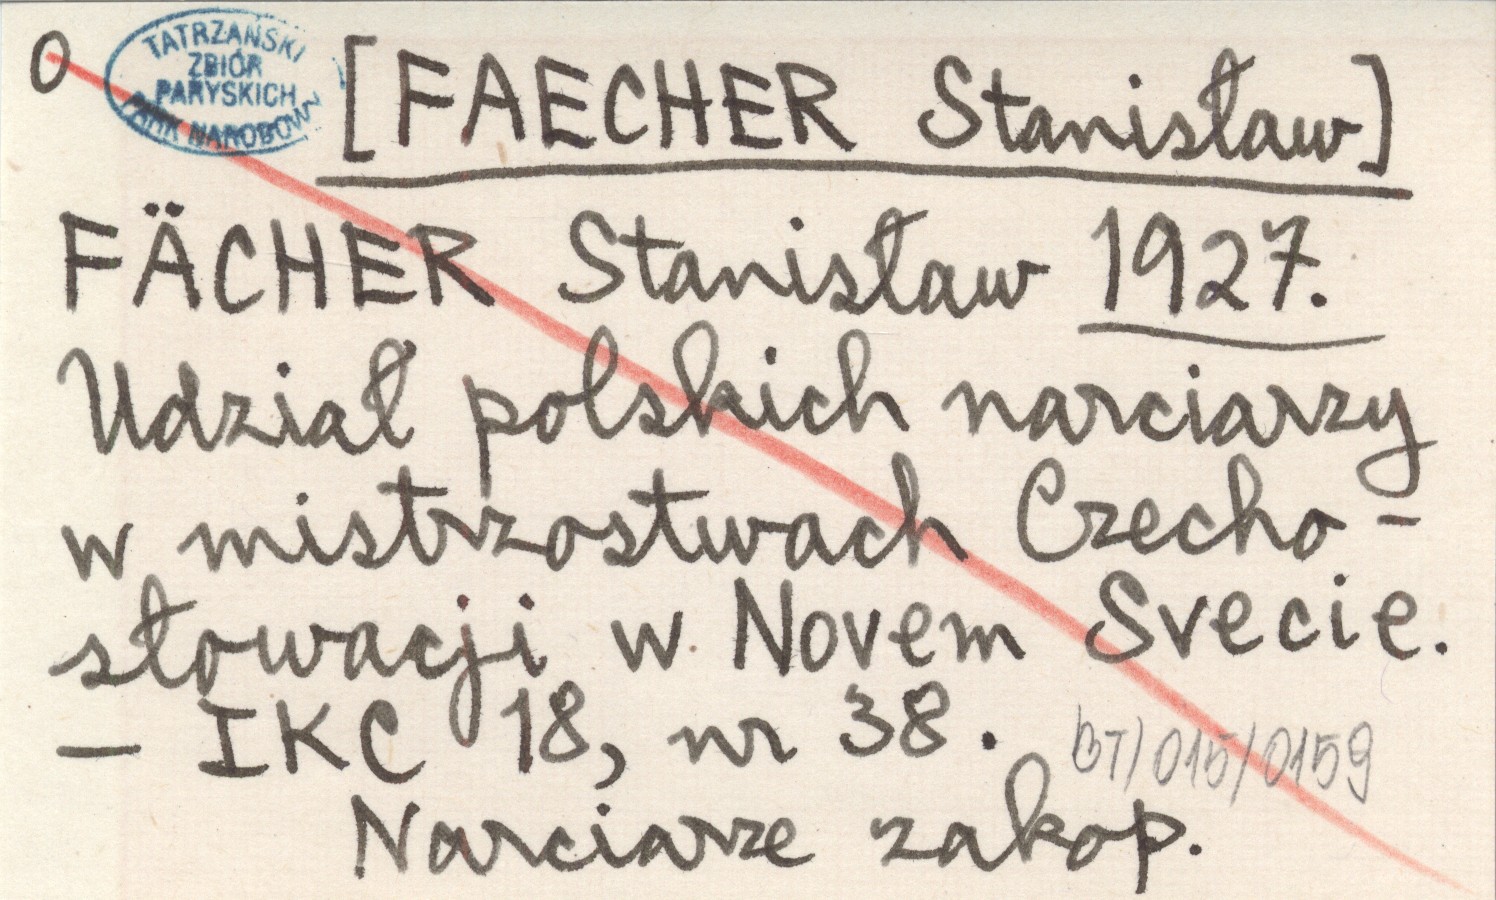 O
TATRZAŃSKI
ZBIÓR
PARYSKICH
PARK NARODOWY
[FAECHER Stanisław]
FÄCHER Stanisław 1927.
Udział polskich narciarzy
w mistrzostwach Czecho-
słowacji w Novem Svecie.
— IKC 18, nr 38.
BT/015/0159
Narciarze zakop.